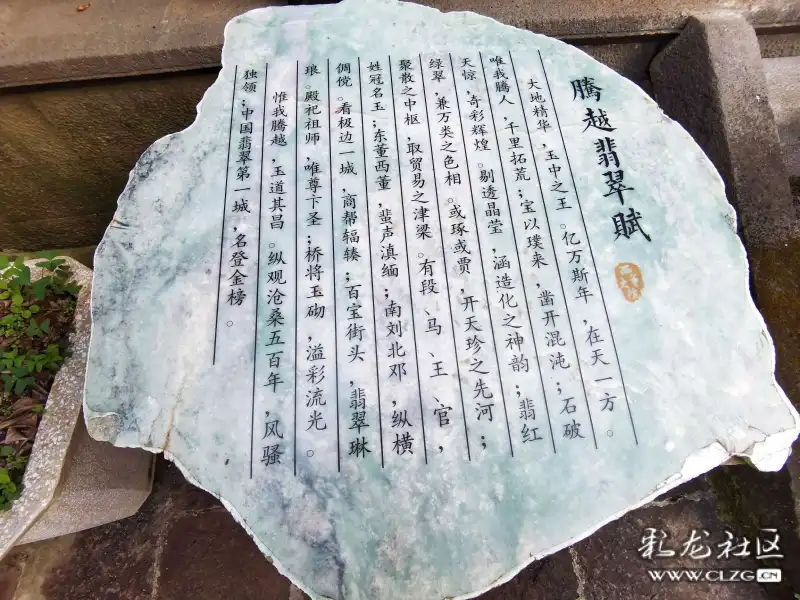 腾越翡翠赋
大地精华，玉中之王。亿万斯年，在天一方。
唯我腾人，千里拓荒；宝以璞来，凿开混沌；石破
天惊，奇彩辉煌。剔透晶莹，涵造化之神韵；翡红
绿翠，兼万类之色相。或琢或贾，开天珍之先河；
聚散之中枢，取贸易之津梁。有段、马、王、官，
姓冠名玉；东董西董，蜚声滇缅；南刘北邓，纵横
倜傥。看极边一城，商帮辐辏；百宝街头，翡翠琳
琅。殿祀祖师，唯尊卞圣；桥将玉砌，溢彩流光。
惟我腾越，玉道其昌。纵观沧桑五百年，风骚
独领；中国翡翠第一城，名登金榜。
彩龙社区
WWW.CLZG.CN